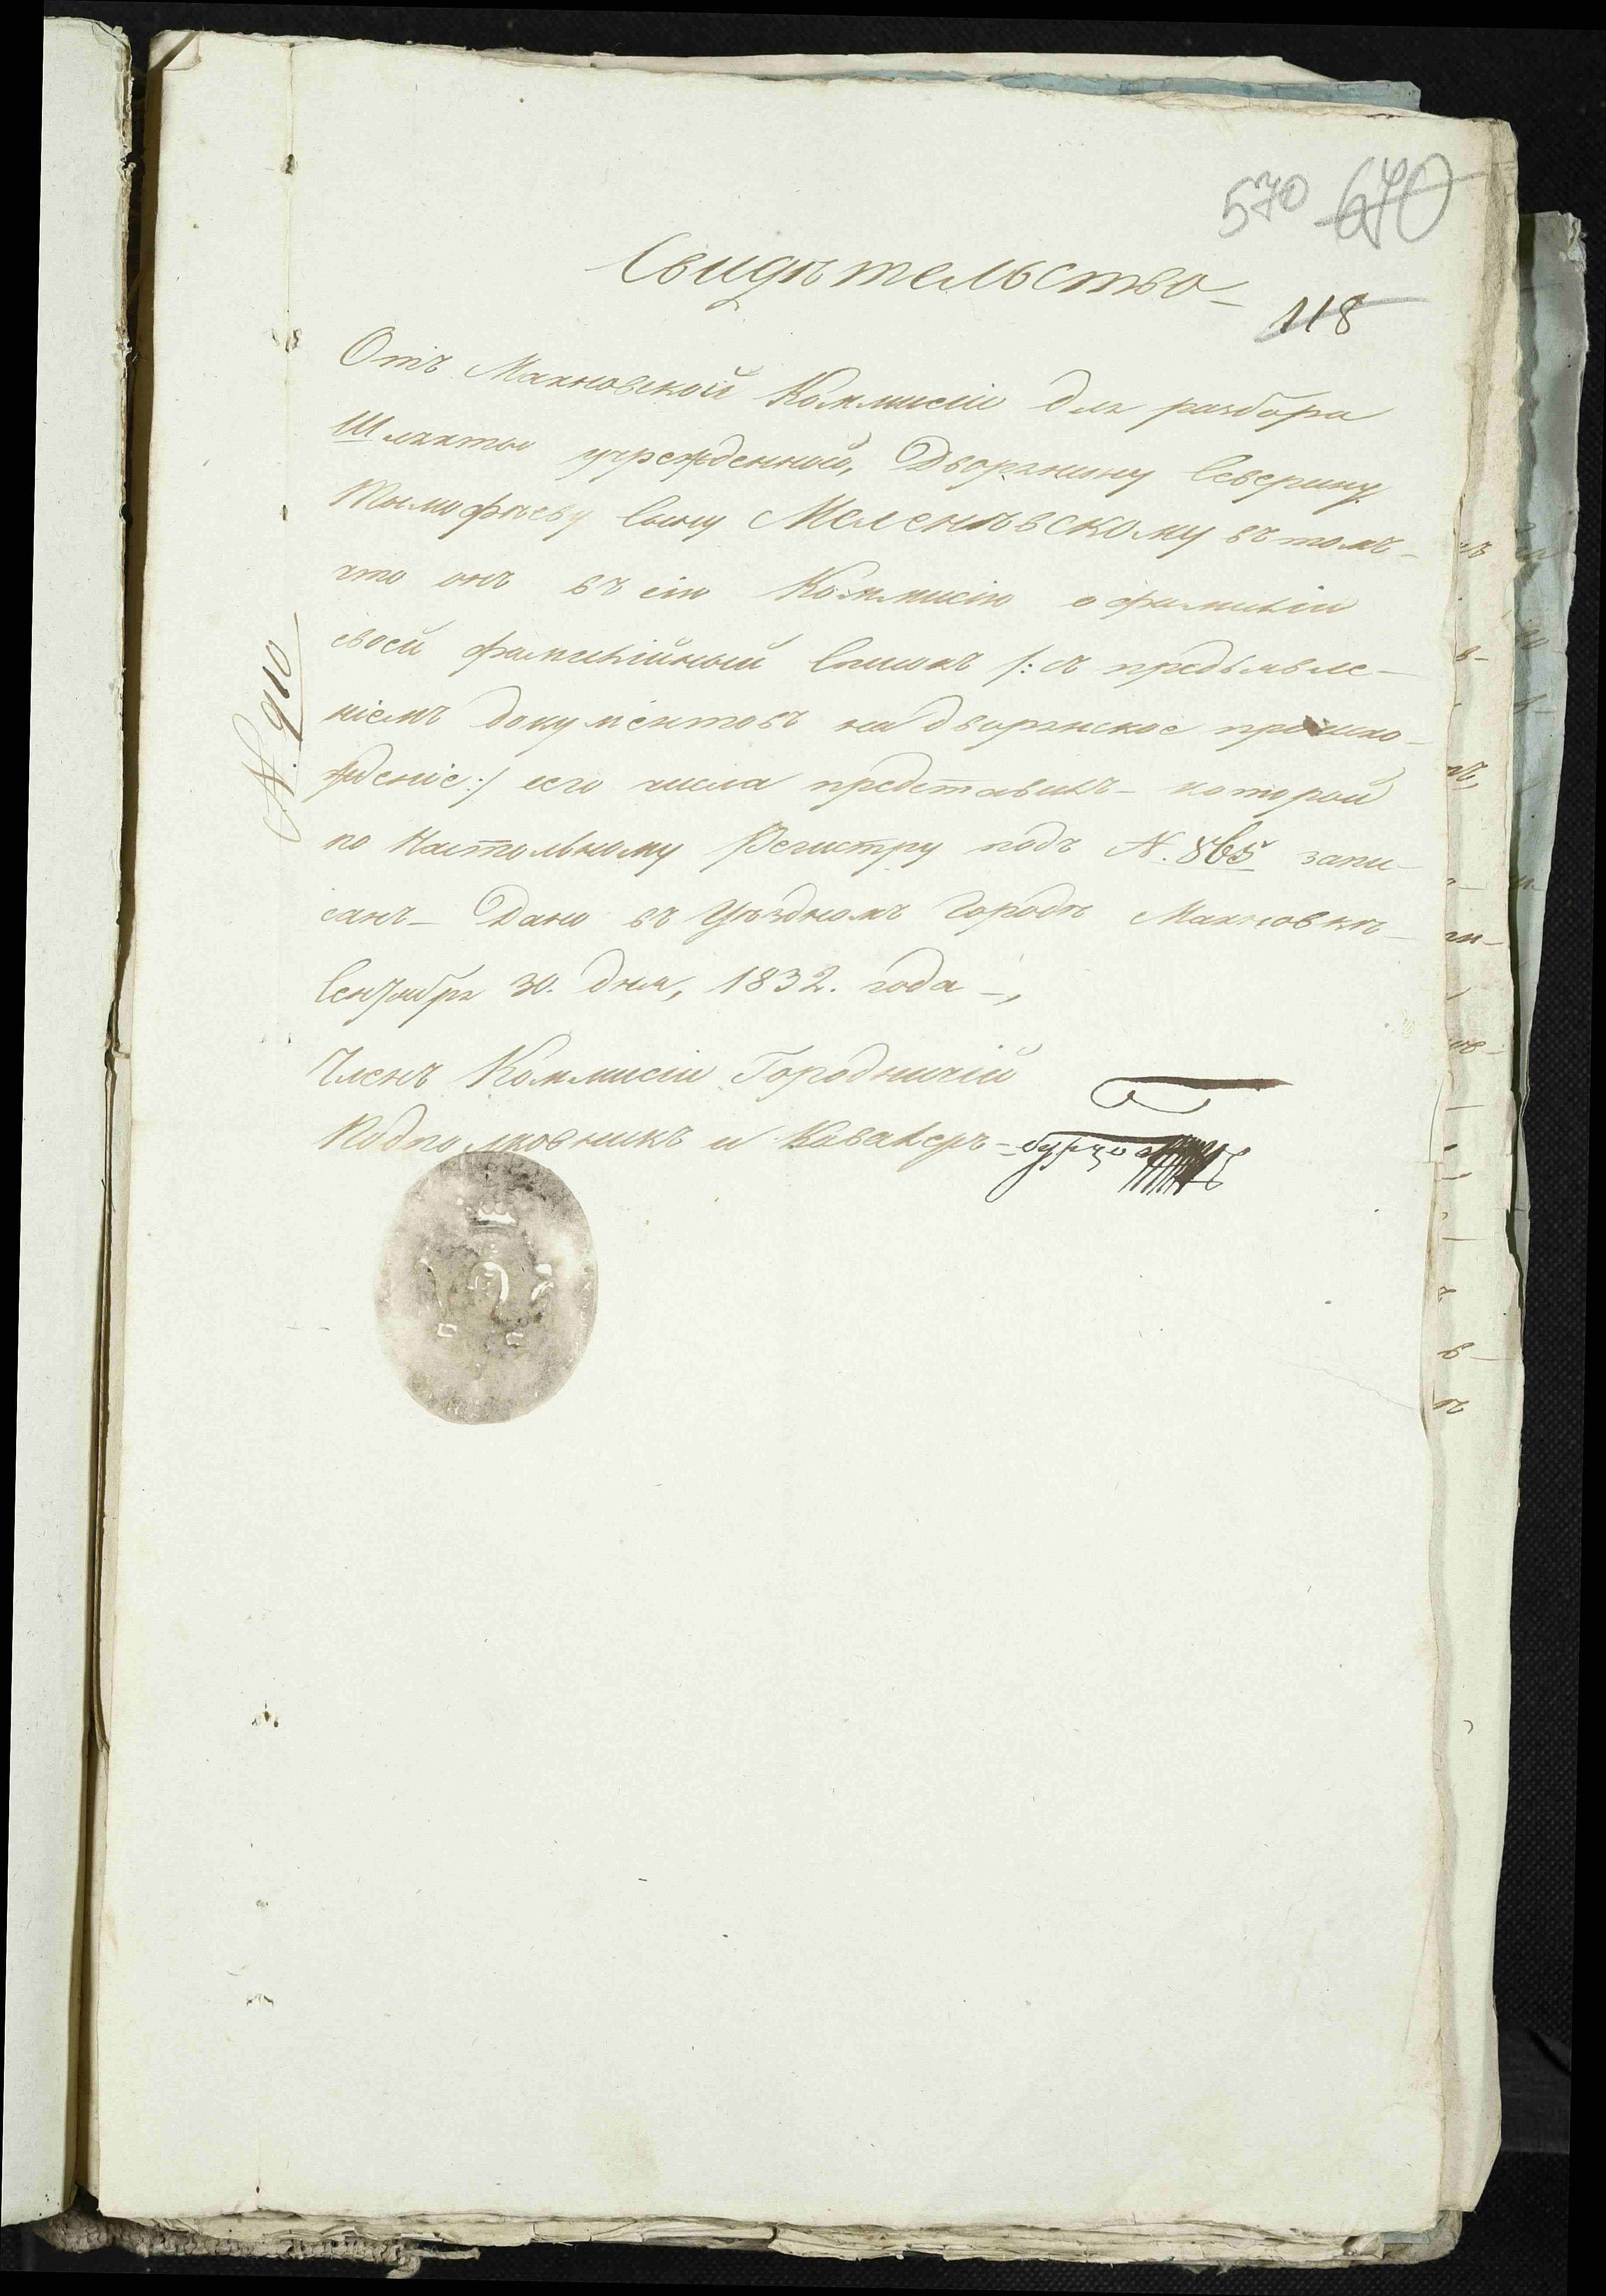 570 670
Свидѣтельство
118
Отъ Махновской Коммисіи для разбора
Шляхты учрежденной, Дворянину Северину
Тымофѣеву сыну Меленѣвскому въ томъ
что онъ въ сію Коммисію о фамиліи
своей фамилійный списокъ /: съ предъявле-
ніемъ документовъ на дворянское происхо-
жденіе :/ сего числа представилъ - которой
по Настольному Регистру подъ N. 865 запи-
санъ - Дано въ Уѣздномъ Городѣ Махновкѣ
Сентября 30. дня, 1832. года -,
Членъ Коммисіи Городничій
Подполковникъ и Кавалеръ -
N. 910